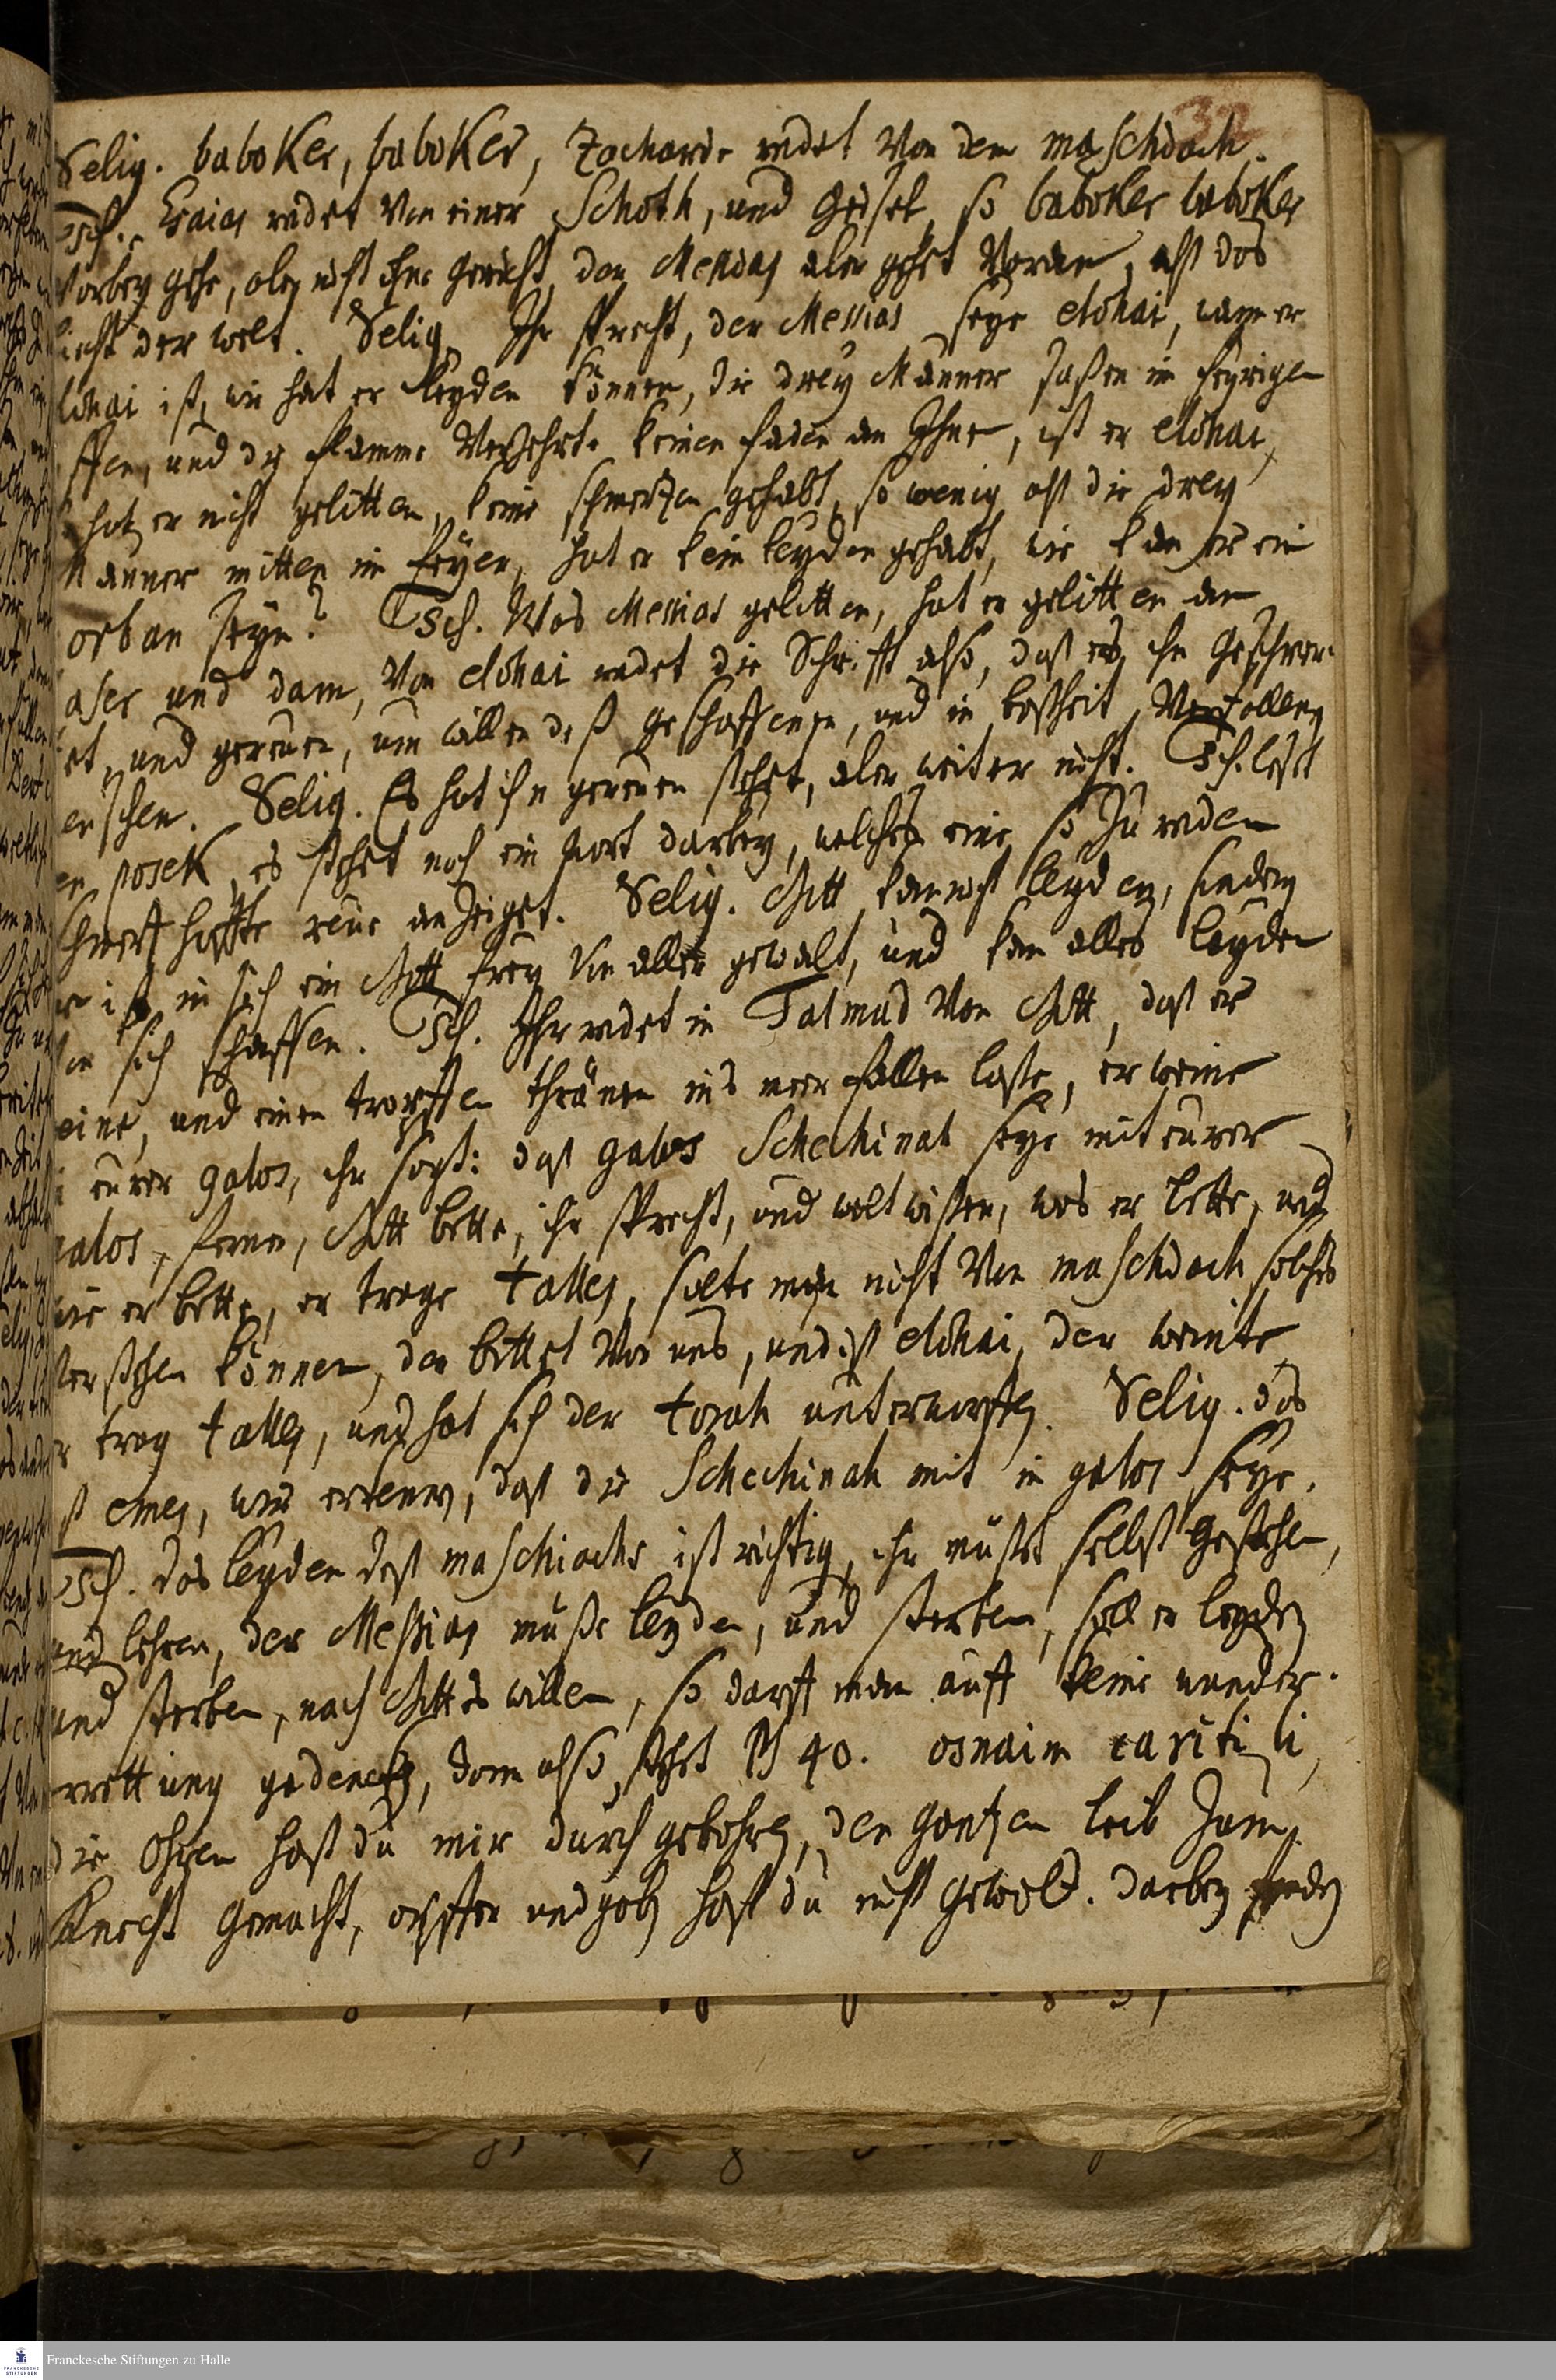 32
Selig. baboker, baboker, Zacharia redet von dem maschdach.
Tsch. Esaias redet von einer Schoth, und Geisel, so baboker baboker
vorbey gehe, aber nicht ihne gericht, der Messias aber gehet voran, alß das
licht der welt. Selig. Ihr sprecht, der Messias seye elohai, wann er
lohai ist, wie hat er leyden können, die drey Männer saßen im feyrigen
ffen, und die flamme verzehrte keinen faden an Ihne, ist er elohai,
hat er nicht gelitten, keine schmertzen gehabt, so wenig alß die drey
Männer mitten im feyer, hat er kein leyden gehabt, wie kan er ein
orban seyn? Tsch. Was Messias gelitten, hat er gelitten am
aser und dam, von elohai redet die Schrifft also, daß es ihn geschmer-
et, und gereuen, um willen deß geschaffenen, und in boßheit verfallenen
enschen. Selig. Es hat ihn gereuen stehet, aber weiter nicht. Tsch. leset
en posek, es stehet noch ein wort darbey, welches eine so zu reden
schmertzhaffte reue anzeiget. Selig. Gott kan nicht leyden, sondern
er ist in sich ein Gott frey von aller gewalt, und kan alles leyden
von sich schaffen. Tsch. Ihr redet in Talmud von Gott, daß er
eine, und einen tropffen thränen ins meer fallen lasse, er weine
i eurer galos, ihr sagt: daß galos Schechinah seye mit eurer
galos, ferner, Gott bette, ihr sprecht, und wolt wissen, was er bette, und
wie er bette, er trage talles, solte man nicht von maschdach solches
verstehen können, der bettet vor uns, und ist elohai, der weinte,
er trag talles, und hat sich der torah unterworffen. Selig. das
ist emes, wir erkennen, daß die Schechinah mit in galos seye.
Tsch. das leyden deß maschiachs ist richtig, ihr müsset selbst gestehen,
und lehren, der Messias müsse leyden, und sterben, soll er leyden
und sterben, nach Gottes willen, so darff man auff keine wunder-
errettung gedencken, dann also stehet Ps 40. osnaim cariti li,
die Ohren hast du mir durchgebohren, den gantzen leib zum
Knecht gemacht, opffer und gab hast du nicht gewolt. darbey
Franckesche Stiftungen zu Halle